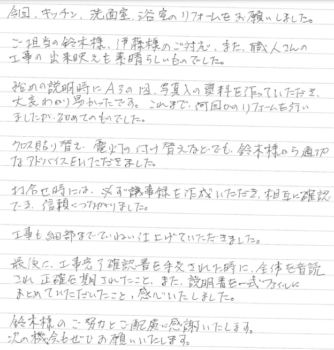 今回、キッチン、洗面室、浴室のリフォームをお願いしました。
ご担当の鈴木様、伊藤様のご対応、また、職人さんの
工事の出来映えも素晴らしいものでした。
始めの説明時にA3の図、写真入の資料を作っていただき、
大変わかり易かったです。これまで、何回かのリフォームを行い
ましたが、初めてのものでした。
クロス貼り替え、電灯の付け替えなどでも、鈴木様から適切
なアドバイスをいただきました。
打合せ時には、必ず議事録を作成いただき、相互に確認
でき、信頼につながりました。
工事も細部までていねいに仕上げていただきました。
最後に、工事完了確認書を手交された時に、全体を音読
され正確を期されたこと、また、説明書を一式ファイルに
まとめていただいたこと、感心いたしました。
鈴木様のご努力とご配慮に感謝いたします。
次の機会もぜひお願いいたします。